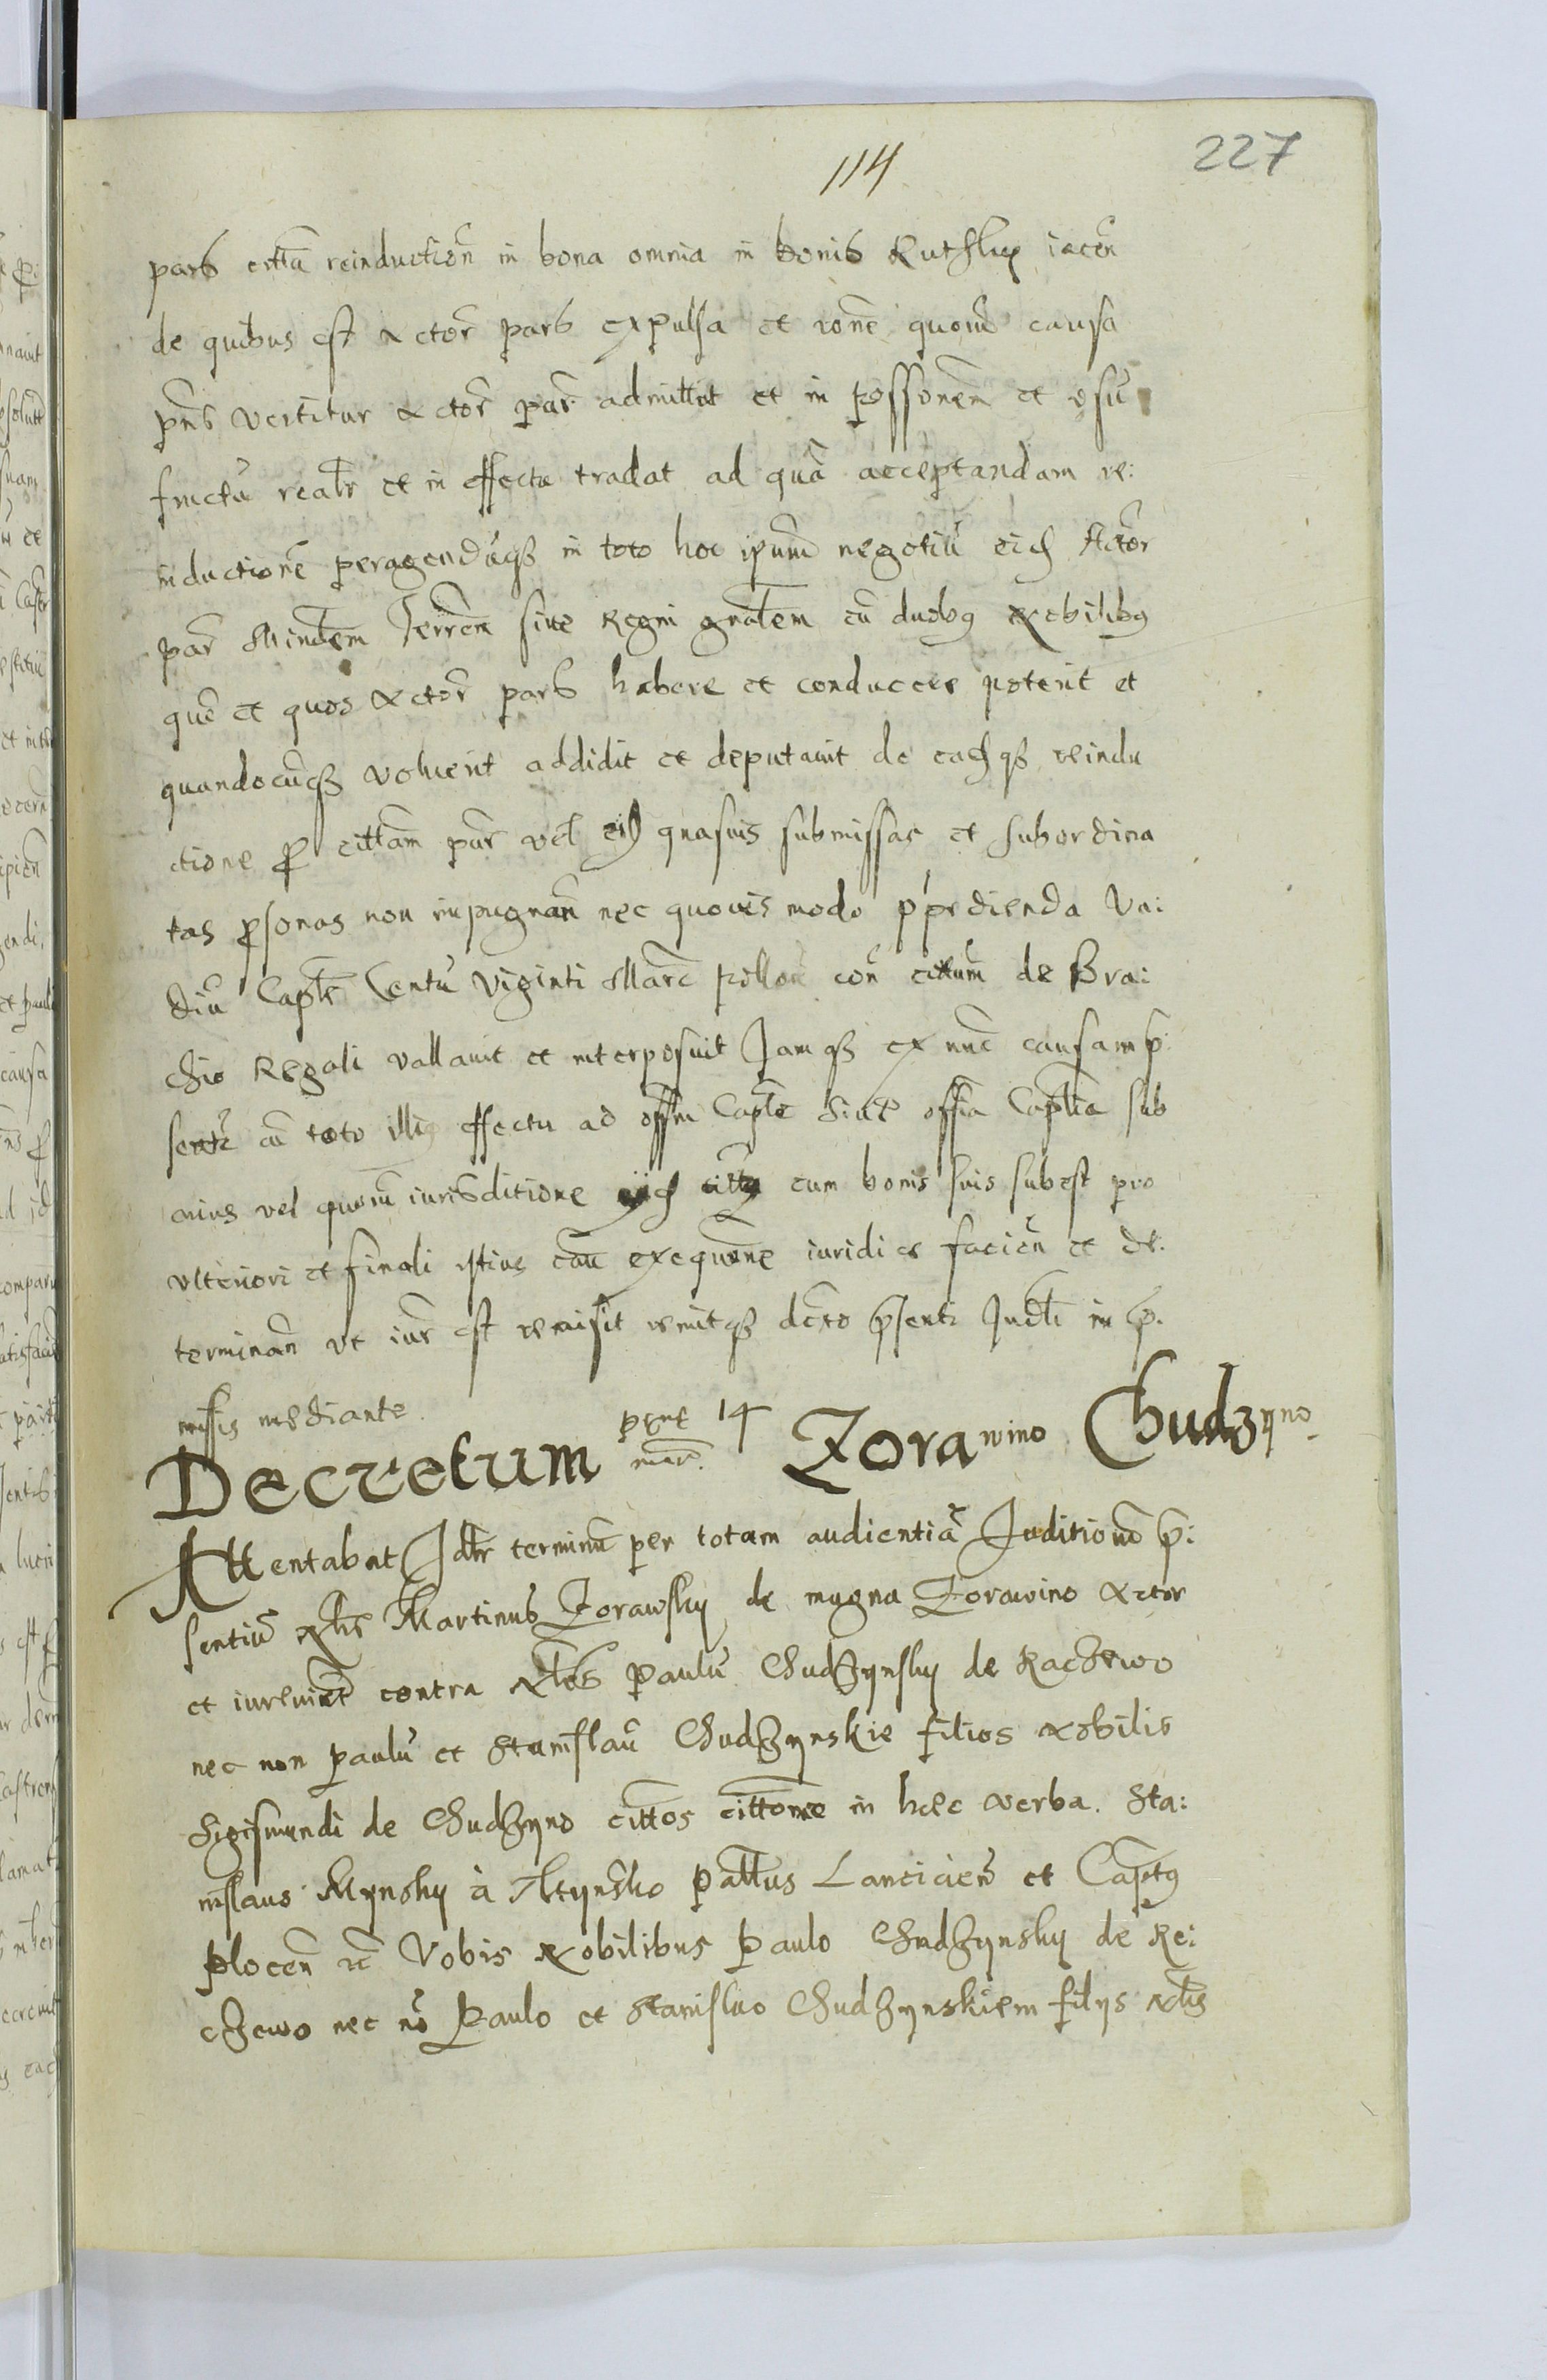 114
227
pars citta reinduction in bona omnia in bonis Rutsky iacen
de quibus est Actor pars expulsa et rone quorum causa
pns vertitur Actor par admittat et in possonem et usu
fructu realr et in effectu tradat ad quā acceptandam re:
inductionē peragendāqȝ in toto hoc ipsum negotiū eid Actor
par Mindem Terrem siue Regni gnalem cū duobus Nobilibus
quē et quos Actor pars habere et conducere poterit et
quandocūqȝ voluerit addidit et deputauit de eadqȝ reindu
ctione p cittam par vel eid quasuis submissas et subordina
tas psonas non impugnan nec quouis modo ppedienda Va:
diū Captle Centū viginti Marc pollon con cittum de Bra:
chio Regali vallauit et interposuit Jamqȝ ex nunc causam p:
sentē cū toto illius effectu ad offm Captle siue offia Captlia sub
cuius vel quorū iurisditione eid citta cum bonis suis subest pro
vlteriori et finali istius cau exequone iuridice facien et de:
terminan vt iur est remisit remitqȝ dcreto psenti Judli in p:
missis mediante
Decretum pene 14 marc. Zorawino Chudzyno
Attentabat Idtr terminū per totam audientiā Juditiorū p:
sentiū Nlis Martinus Zorawsky de magna Zorawino Actor
et iureuinct contra Nles Paulū Chudzynsky de Raczewo
nec non Paulū et Stanislaū Chudzynskie filios Nobilis
Sigismundi de Chudzyno cittos cittone in haec verba. Sta:
nislaus Mynsky à Mynsko Pallus Lancicien et Captus
Plocen rc Vobis Nobilibus Paulo Chudzynsky de Re:
czewo nec nō Paulo et Stanislao Chudzynskiem filys Nlis